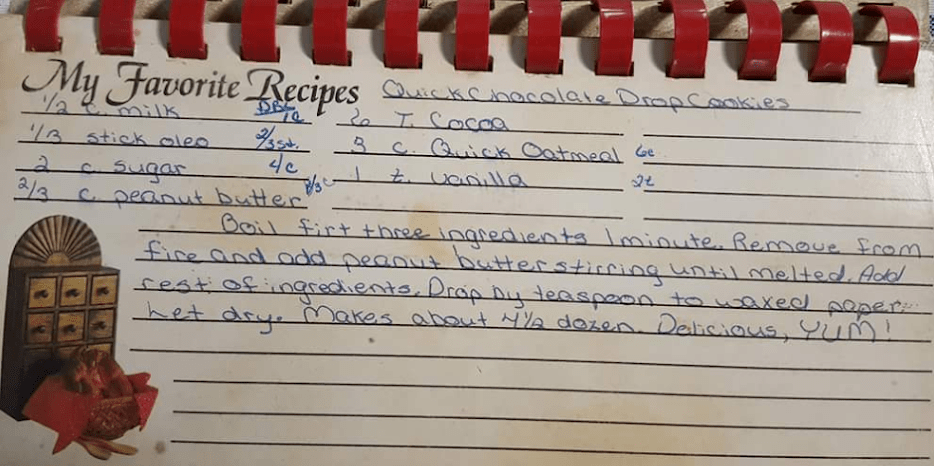 My Favorite Recipes Quick Chocolate Drop Cookies
1/2 c. milk DBL 1c T. Cocoa
1/3 stick oleo 2/3 st. 3 c. Quick Oatmeal 6c
2 c. sugar 4c 1 t. vanilla 2t
2/3 c. peanut butter
Boil firt three ingredients 1 minute. Remove from
fire and add peanut butter stirring until melted. Add
rest of ingredients. Drop by teaspoon to waxed paper.
Let dry. Makes about 4 1/2 dozen. Delicious, YUM!